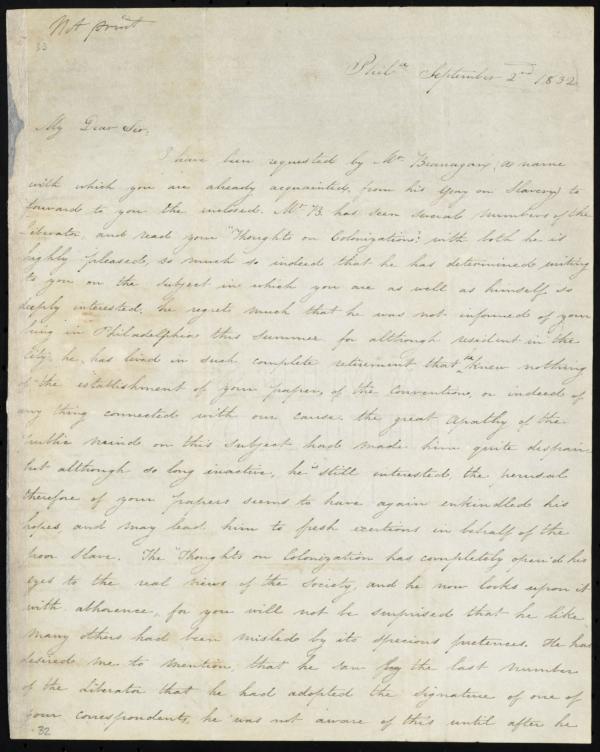 Not print
33
Phila September 2nd 1832
My Dear Sir,
I have been requested by Mr Branagan, (a name
with which you are already acquainted, from his Essay on Slavery) to
forward to you the inclosed. Mr B. has seen several numbers of the
Liberator, and read your "Thoughts on Colonization", with both he is
highly pleased, so much so indeed that he has determined writing
to you on the subject in which you are as well as himself so
deeply interested. he regrets much that he was not informed of your
being in Philadelphia this summer for although resident in the
City, he has lived in such complete retirement that he knew nothing
of the establishment of your paper, of the Convention, or indeed of
any thing connected with our cause. the great apathy of the
public mind on this subject had made him quite despair
but although so long inactive, he is still interested, the perusal
therefore of your papers seems to have again enkindled his
hopes, and may lead him to fresh exertions in behalf of the
poor Slave. The "Thoughts on Colonization has completely open'd his
eyes to the real views of the Society, and he now looks upon it
with abhorence, for you will not be surprised that he like
many others had been misled by its specious pretences. He has
desired me to mention, that he saw by the last number
of the Liberator that he had adopted the signature of one of
your correspondents, he was not aware of this until after he
32